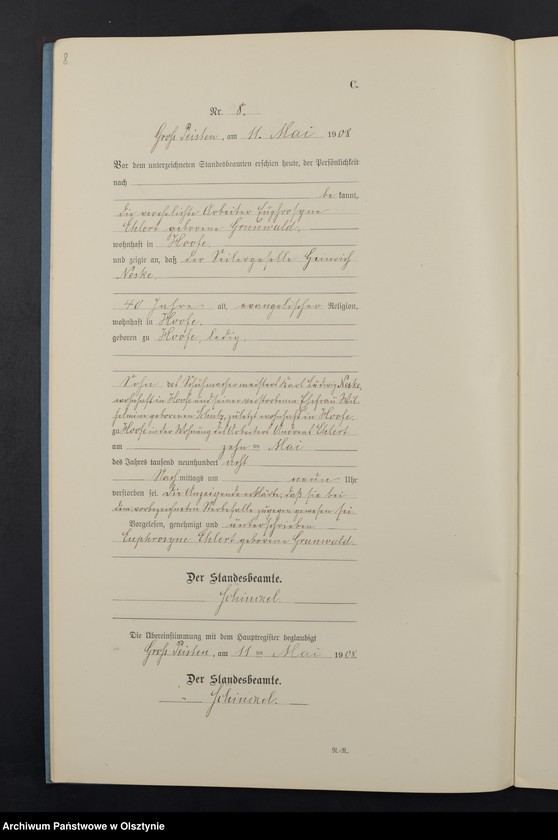 8
C.
Nr. 8.
Groß Peisten, am 11. Mai 1908
Vor dem unterzeichneten Standesbeamten erschien heute, der Persönlichkeit
nach
bekannt,
die verehelichte Arbeiter Euphrosyne
Ehlert geborene Grunwald.
wohnhaft in Hoofe.
und zeigte an, daß der Seilergeselle Heinrich
Neske.
40 Jahre alt, evangelischer Religion,
wohnhaft in Hoofe.
geboren zu Hoofe, ledig.
Sohn des Schuhmachermeisters Karl Ludwig Neske,
wohnhaft in Hoofe und seiner verstorbenen Ehefrau Wil-
helmine geborenen zuletzt wohnhaft in Hoofe.
zu Hoofe in der Wohnung des Arbeiters Andreas Ehlert
am zehnten Mai
des Jahres tausend neunhundert acht
Nachmittags um neun Uhr
verstorben sei. Die Anzeigende erklärte, daß sie bei
dem vorbezeichneten Sterbefalle zugegen gewesen sei.
Vorgelesen, genehmigt und unterschrieben
Euphrosyne Ehlert geborene Grunwald.
Der Standesbeamte.
Schinckel.
Die Übereinstimmung mit dem Hauptregister beglaubigt
Groß Peisten, am 11ten Mai 1908
Der Standesbeamte.
Schinckel.
R.-R.
Archiwum Państwowe w Olsztynie